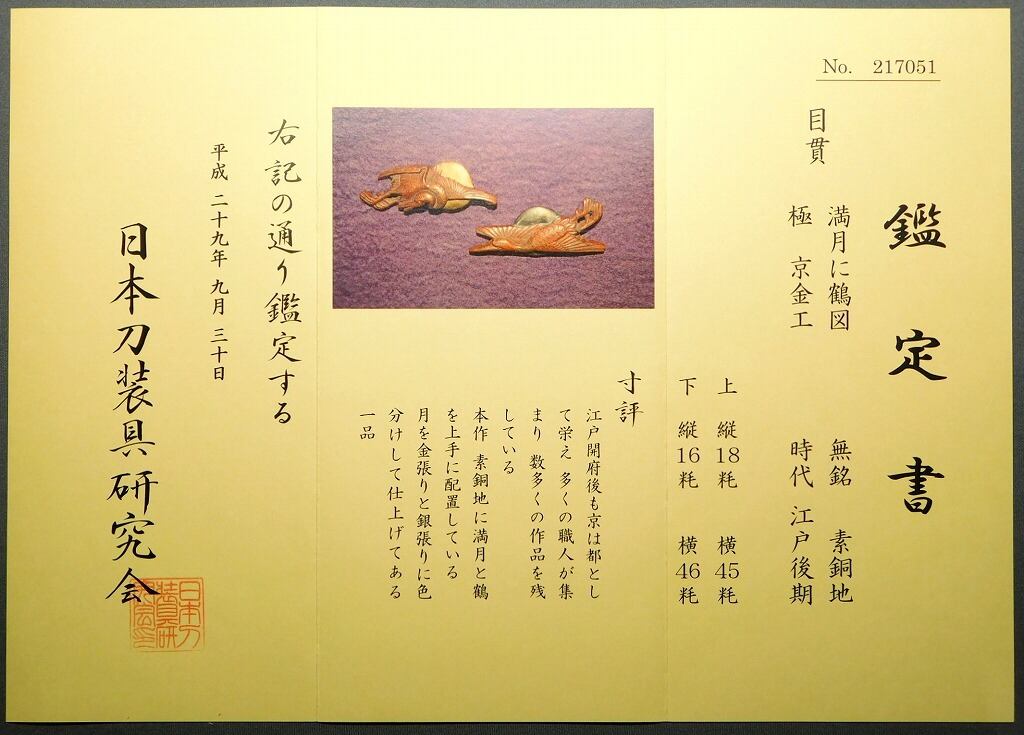 No. 217051
鑑定書
目貫
満月に鶴図 無銘 素銅地
極 京金工 時代 江戸後期
上 縦18粍 横45粍
下 縦16粍 横46粍
寸評
江戸開府後も京は都とし
て栄え 多くの職人が集
まり 数多くの作品を残
している
本作 素銅地に満月と鶴
を上手に配置している
月を金張りと銀張りに色
分けして仕上げてある
一品
右記の通り鑑定する
平成 二十九年 九月 三十日
日本刀装具研究会